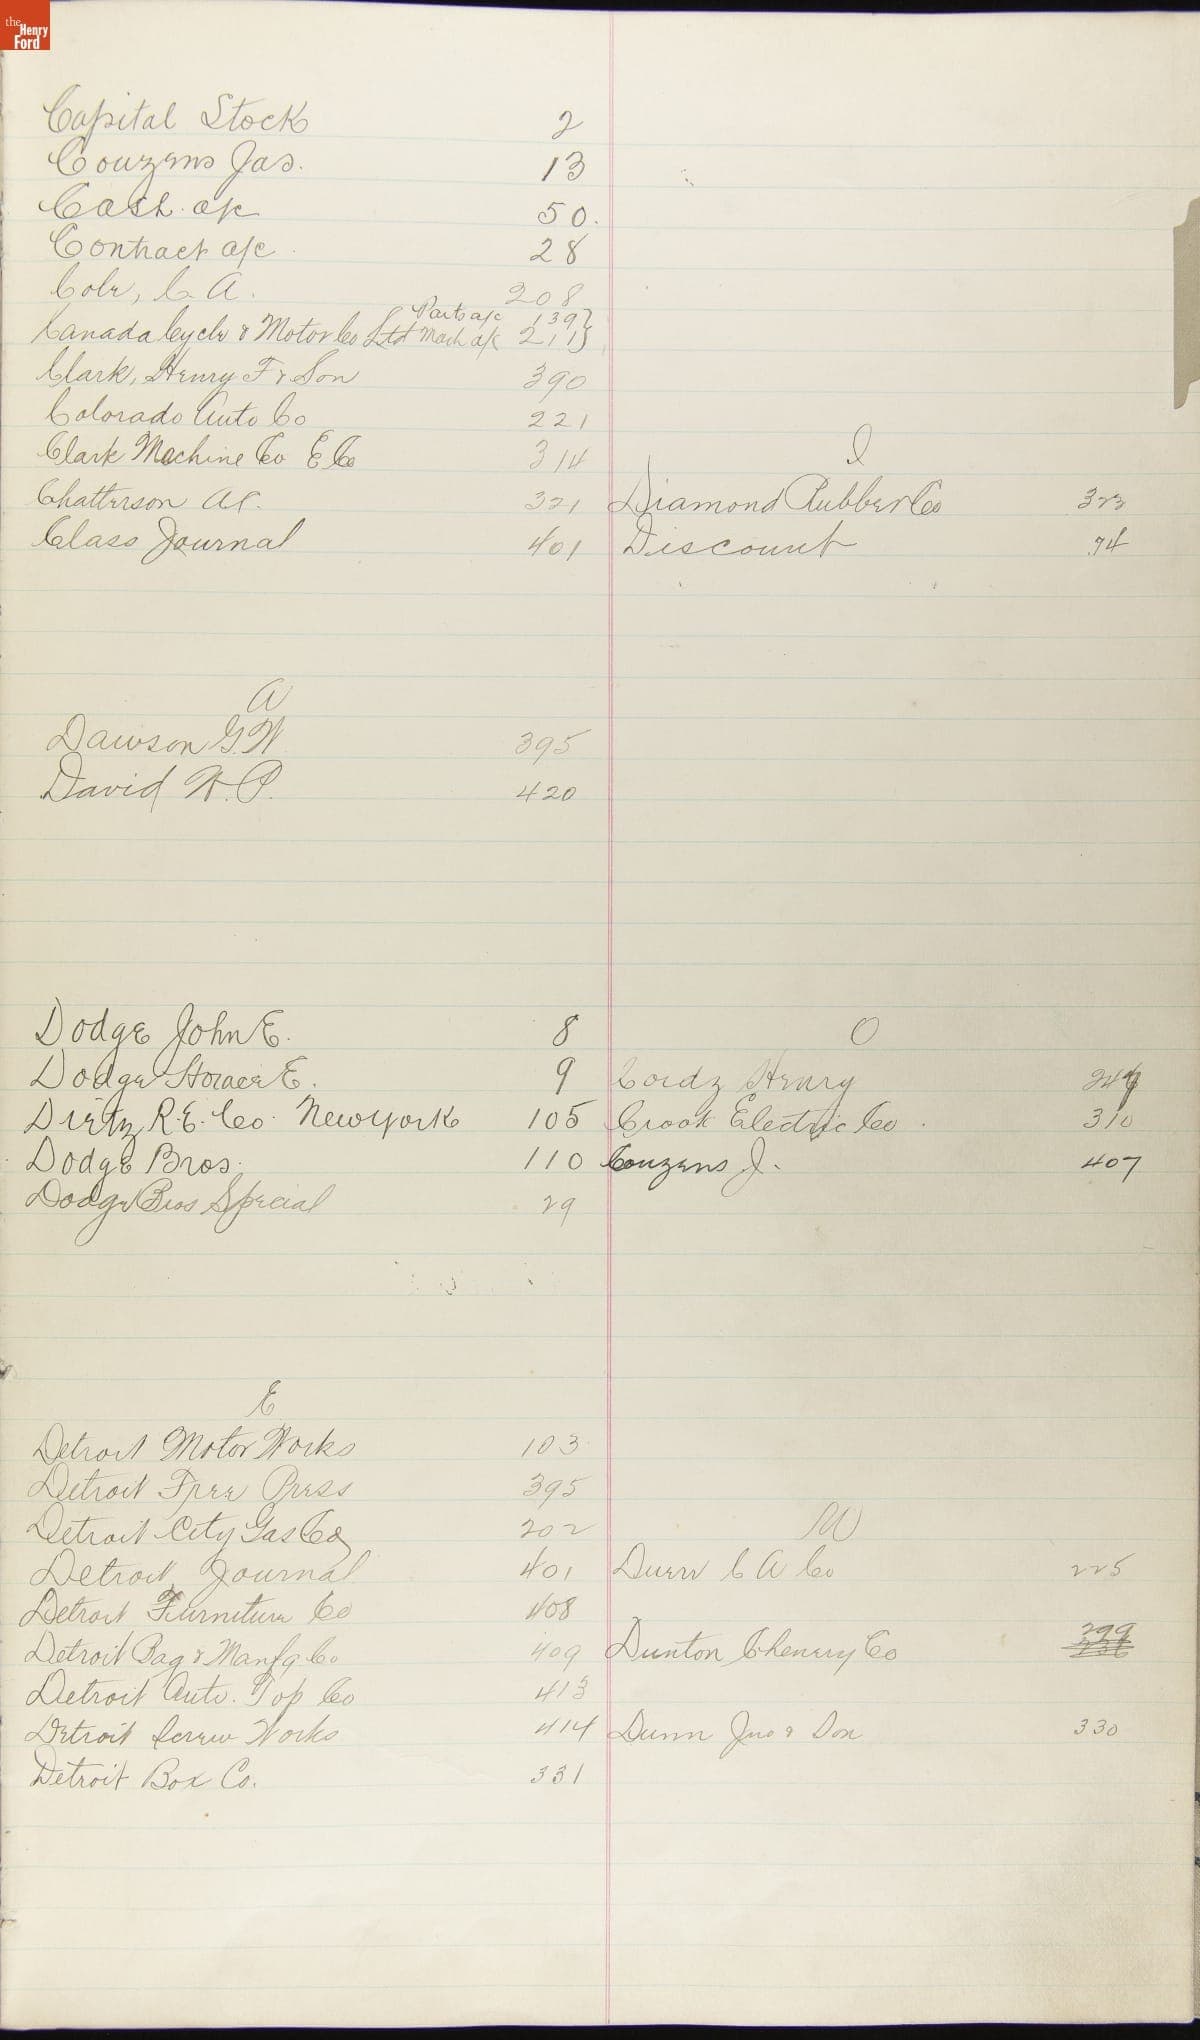 the
Henry
Ford
Capital Stock 2
Couzens Jas. 13
Cash a/c 50.
Contract a/c 28
Cole, C. A. 208
Parts a/c 139
Canada Cycle & Motor Co Ltd Mach a/c 211
Clark, Henry F & Son 390
Colorado Auto Co 221
Clark Machine Co E Co 314
Chatterson A.C. 321
Class Journal 401
A
Dawson G.W 395
David W.P. 420
Dodge John E. 8
Dodge Horace E. 9
Dietz R.E. Co. New York 105
Dodge Bros. 110
Dodge Bros Special 29
E
Detroit Motor Works 103
Detroit Free Press 395
Detroit City Gas Co 202
Detroit Journal 401
Detroit Furniture Co 408
Detroit Bag & Manfg Co 409
Detroit Auto. Top Co 413
Detroit Screw Works 414
Detroit Box Co. 331
I
Diamond Rubber Co 323
Discount 74
O
Cordz Henry
Crook Electric Co 310
Couzens J. 407
Duerr C A Co 225
Dunton Chenery Co 299
Dunn Jno & Son 330